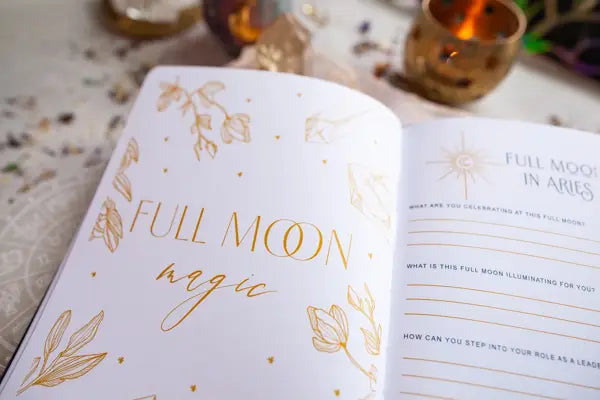 FULL MOON
magic
FULL MOON
IN ARIES
WHAT ARE YOU CELEBRATING AT THIS FULL MOON?
WHAT IS THIS FULL MOON ILLUMINATING FOR YOU?
HOW CAN YOU STEP INTO YOUR ROLE AS A LEADE